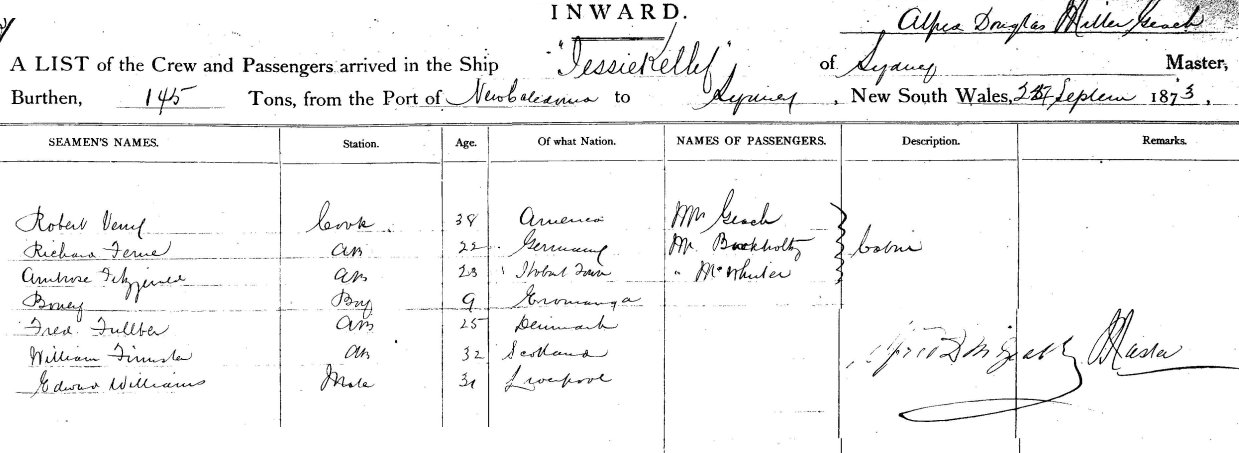 INWARD.
Alfred Douglas Miller Geach
A LIST of the Crew and Passengers arrived in the Ship "Jessie Kelly" of Sydney Master,
Burthen, 145 Tons, from the Port of New Caledonia to Sydney, New South Wales, Septem 1873,
SEAMEN'S NAMES. Station. Age. Of what Nation. NAMES OF PASSENGERS. Description. Remarks.
Robert Cook. 38 America Geach
Richard AB 22 Germany Mr Buckholtz Cabin
Ambrose AB 23 Hobart Town " McWhirter
Boney Boy 9 Eromanga
Fred AB 25 Denmark
William AB 32 Scotland
Edward Williams Mate 31 Liverpool
Master